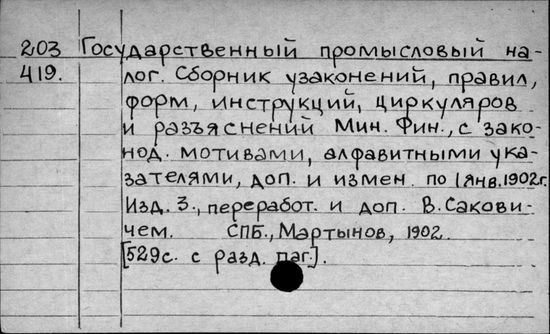 203 Государственный промысловый на-
419. лог. Сборник узаконений, правил,
форм, инструкций, циркуляров
и разъяснений Мин. Фин., с зако-
нод. мотивами, алфавитными ука-
зателями, доп. и измен. по 1 янв. 1902 г.
Изд. 3., переработ. и доп. В. Сакови-
чем. СПБ., Мартынов, 1902.
[529 с. с разд. паг.].